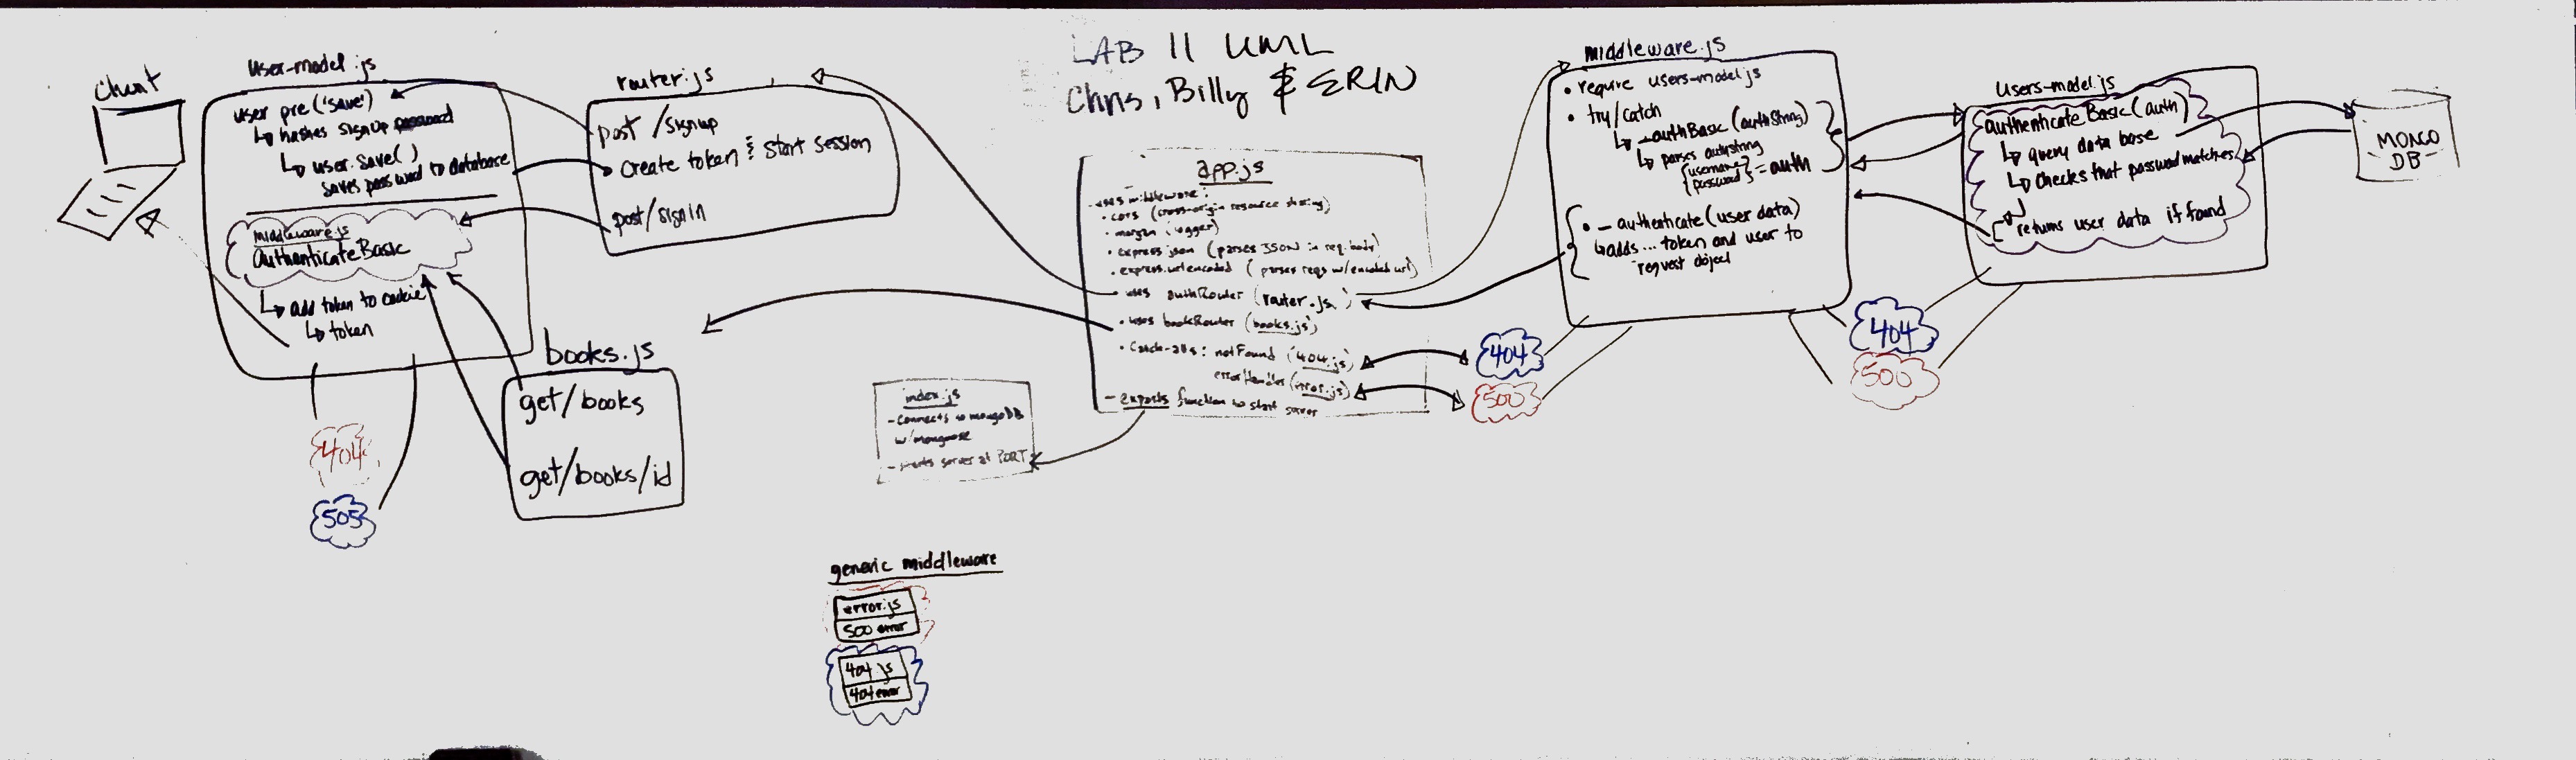 LAB 11 UML
Chris, Billy & ERIN
Client
user-model.js
user pre('save')
hashes signup password
user.save()
saves password to database
middleware.js
authenticateBasic
add token to cookie
token
404
505
router.js
post /signup
create token & start session
post/signin
books.js
get/books
get/books/id
index.js
- connects to mongoDB
w/mongoose
- starts server at PORT
app.js
- uses middleware:
• cors (cross-origin resource sharing)
• morgan (logger)
• express.json (parses JSON in req.body)
• express.urlencoded (parses reqs w/encoded url)
• uses authRouter (router.js)
• uses bookRouter (books.js)
• Catch-alls: notFound (404.js)
errorHandler (error.js)
- exports function to start server
404
500
middleware.js
• require users-model.js
• try/catch
_authBasic (authString)
parses authstring
{username
password} = auth
• _authenticate (user data)
adds... token and user to
request object
404
500
users-model.js
authenticateBasic (auth)
query data base
checks that password matches
returns user data if found
MONGO
DB
generic middleware
error.js
500 error
404.js
404 error